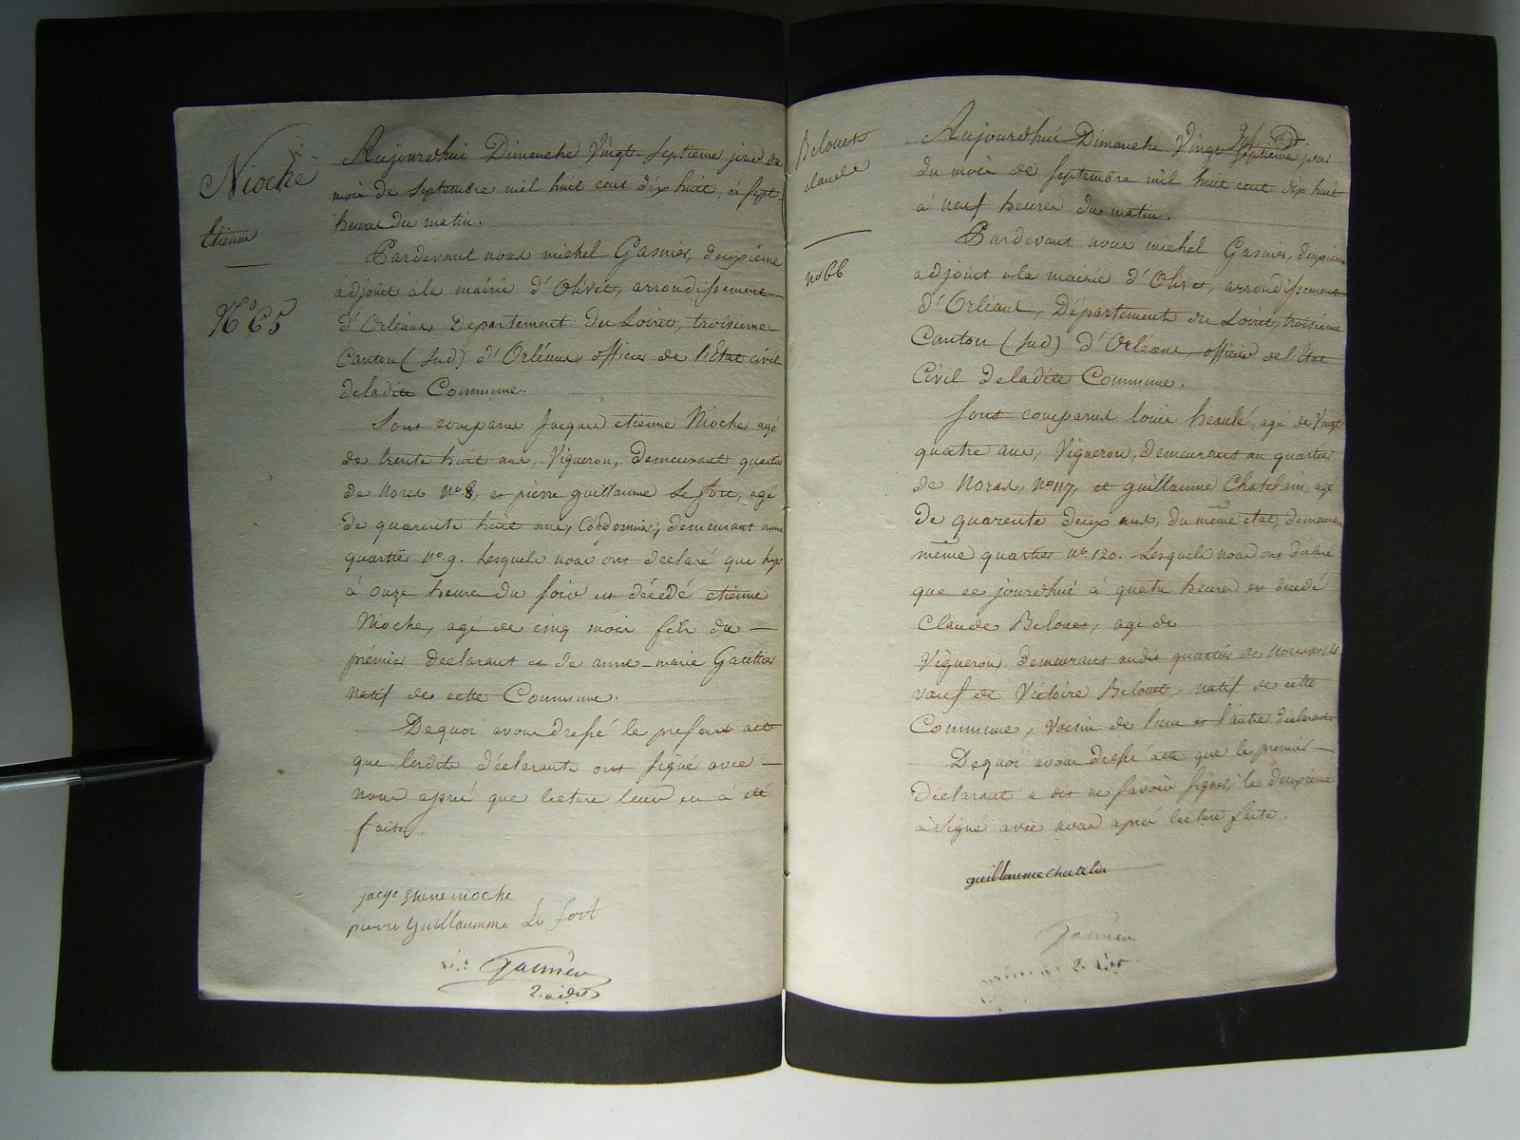 Nioche
Etienne
N° 65
Aujourdhui Dimanche Vingt Septieme jour du
mois de Septembre mil huit cent dix huit, à sept
heures du matin.
Pardevant nous michel Gasnier, deuxième
adjoint ala mairie d'Olivet, arrondissement
d'Orléans Département du Loiret, troisieme
Canton (Sud) d'Orléans officier de l'Etat civil
deladite Commune.
Sont comparus Jacques etienne Nioche agé
de trente huit ans, Vigneron, demeurant quartier
de Noras N° 8, et pierre guillaume Le fort, agé
de quarente huit ans, Cordonnier, demeurant même
quartier N° 9. Lesquels nous ont declaré que hyer
à onze heures du soir est décédé etienne
Nioche, agé de cinq mois fils du
prémier declarant et de anne-marie Gautier
natif de cette Commune.
Dequoi avons dressé le présent acte
que lesdits déclarants ont signé avec
nous après que lecture leur en à été
faite.
pierre Guillaumme Le fort
Gasnier
2. adjt
Belouet
claude
n° 66
Aujourdhui Dimanche Vingt Septieme jour
du mois de Septembre mil huit cent dix huit
à neuf heures du matin.
Pardevant nous michel Gasnier, deuxième
adjoint ala mairie d'Olivet, arrondissement
d'Orléans, Département du Loiret, troisieme
Canton (Sud) d'Orléans, officier de l'état
Civil deladite Commune.
Sont comparus louis heaulé, agé de Vingt
quatre ans, Vigneron, demeurant au quartier
de Noras, N° 117, et guillaume Chatelain, agé
de quarente deux ans, du même etat, demeurant
même quartier N° 120. Lesquels nous ont déclaré
que ce jourdhui à quatre heures est decedé
Claude Belouet, agé de
Vigneron, demeurant audit quartier de Noras
veuf de Victoire Belouet natif de cette
Commune, Voisin de l'un et l'autre déclarants
Dequoi avons dressé acte que le premier
Déclarant a dit ne savoir signer, le deuxième
à signé avec nous après lecture faite.
guillaume chatelin
Gasnier
2. adjt